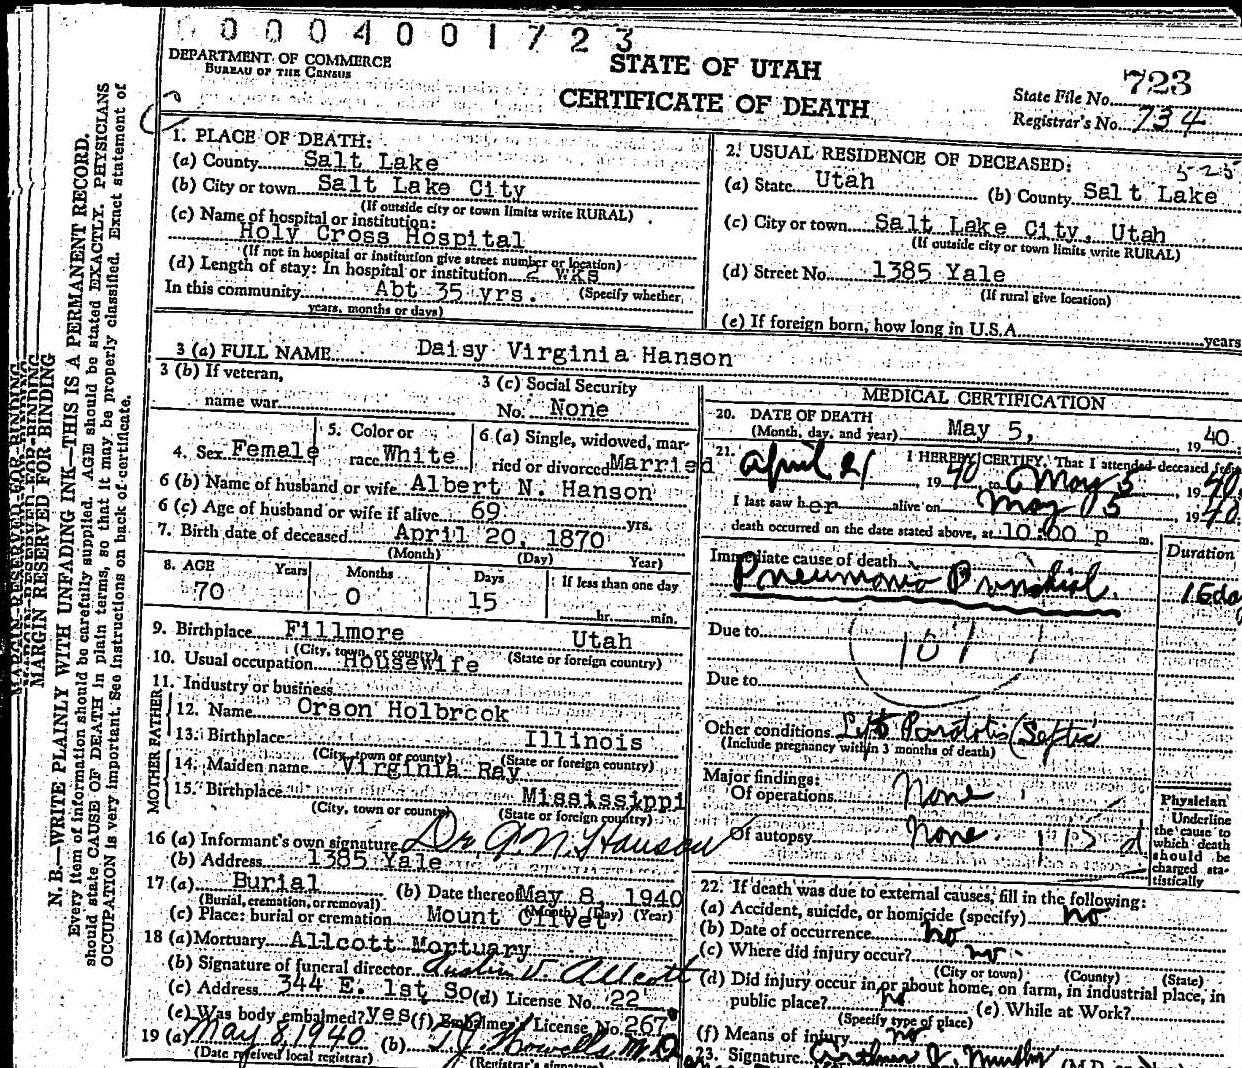 0 0 0 4 0 0 1 7 2 3
DEPARTMENT OF COMMERCE
BUREAU OF THE CENSUS
STATE OF UTAH
CERTIFICATE OF DEATH
State File No. 723
Registrar's No. 734
MARGIN RESERVED FOR BINDING
N. B.—WRITE PLAINLY WITH UNFADING INK—THIS IS A PERMANENT RECORD.
Every item of information should be carefully supplied. AGE should be stated EXACTLY. PHYSICIANS
should state CAUSE OF DEATH in plain terms, so that it may be properly classified. Exact statement of
OCCUPATION is very important. See Instructions on back of certificate.
1. PLACE OF DEATH:
(a) County Salt Lake
(b) City or town Salt Lake City
(If outside city or town limits write RURAL)
(c) Name of hospital or institution:
Holy Cross Hospital
(If not in hospital or institution give street number or location)
(d) Length of stay: In hospital or institution 2 wks
In this community Abt 35 yrs. (Specify whether
years, months or days)
2. USUAL RESIDENCE OF DECEASED:
5-25
(a) State Utah (b) County Salt Lake
(c) City or town Salt Lake City, Utah
(If outside city or town limits write RURAL)
(d) Street No. 1385 Yale
(If rural give location)
(e) If foreign born, how long in U.S.A. years
3 (a) FULL NAME Daisy Virginia Hanson
3 (b) If veteran,
name war
3 (c) Social Security
No. None
4. Sex Female
5. Color or
race White
6 (a) Single, widowed, mar-
ried or divorced Married
6 (b) Name of husband or wife Albert N. Hanson
6 (c) Age of husband or wife if alive 69 yrs.
7. Birth date of deceased April 20, 1870
(Month) (Day) Year)
8. AGE Years Months Days If less than one day
70 0 15 hr. min.
9. Birthplace Fillmore Utah
(City, town, or county) (State or foreign country)
10. Usual occupation Housewife
11. Industry or business
FATHER
12. Name Orson Holbrook
13. Birthplace Illinois
(City, town or county) (State or foreign country)
MOTHER
14. Maiden name Virginia Ray
15. Birthplace Mississippi
(City, town or county) (State or foreign country)
16 (a) Informant's own signature Dr. A. N. Hanson
(b) Address 1385 Yale
17 (a) Burial (b) Date thereof May 8, 1940
(Burial, cremation, or removal) (Month) (Day) (Year)
(c) Place: burial or cremation Mount Olivet
18 (a) Mortuary Allcott Mortuary
(b) Signature of funeral director Austin V. Allcott
(c) Address 344 E. 1st So (d) License No. 22
(e) Was body embalmed? yes (f) Embalmer's License No. 267
19 (a) May 8, 1940 (b) T. J. Howells M.D.
(Date received local registrar) (Registrar's signature)
MEDICAL CERTIFICATION
20. DATE OF DEATH
(Month, day, and year) May 5, 1940.
21. I HEREBY CERTIFY, That I attended deceased from
April 21 1940 to May 5 1940
I last saw her alive on May 5 1940
death occurred on the date stated above, at 10:00 p m.
Immediate cause of death Duration
Pneumonia Bronchial. 16 day
Due to
107
Due to
Other conditions Left Parotitis (Septic
(Include pregnancy within 3 months of death)
Major findings:
Of operations None
Of autopsy None.
Physician
Underline
the cause to
which death
should be
charged sta-
tistically
22. If death was due to external causes, fill in the following:
(a) Accident, suicide, or homicide (specify) no
(b) Date of occurrence no
(c) Where did injury occur? no
(City or town) (County) (State)
(d) Did injury occur in or about home, on farm, in industrial place, in
public place? no (e) While at Work?
(Specify type of place)
(f) Means of injury no
23. Signature Arthur J. Murphy (M.D.